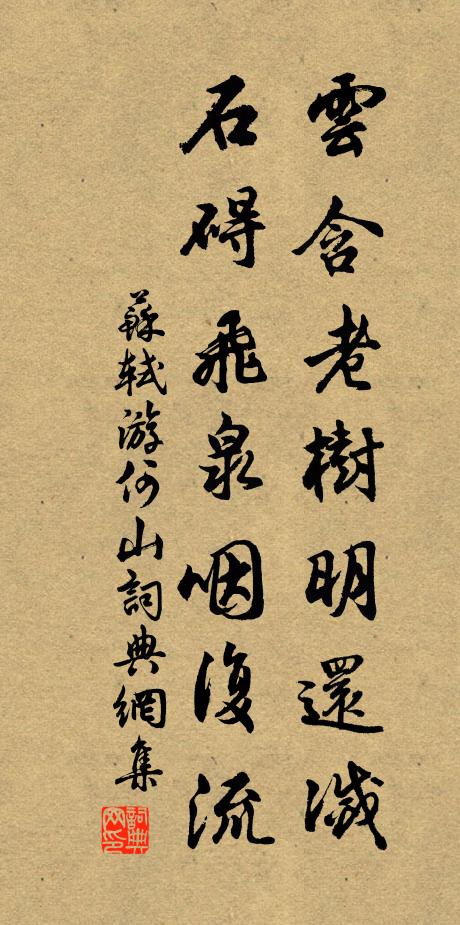 雲含老樹明還滅
石碍飛泉咽復流
蘇軾游何山詞典網集
詞典网印